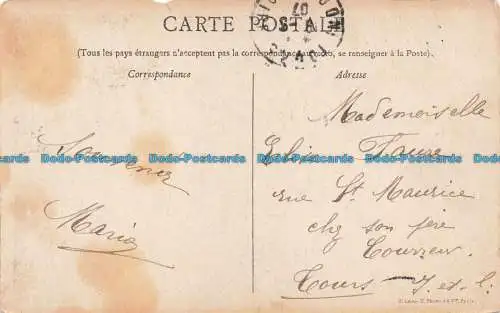 CARTE POSTALE
(Tous les pays étrangers n'acceptent pas la correspondance au recto, se renseigner à la Poste).
Correspondance
Adresse
Souvenir
Maria
Mademoiselle
Faure
rue St Maurice
chez son père
Tours - I. et. L.
Dodo-Postcards Dodo-Postcards Dodo-Postcards Dodo-Postcards Dodo-Postcards